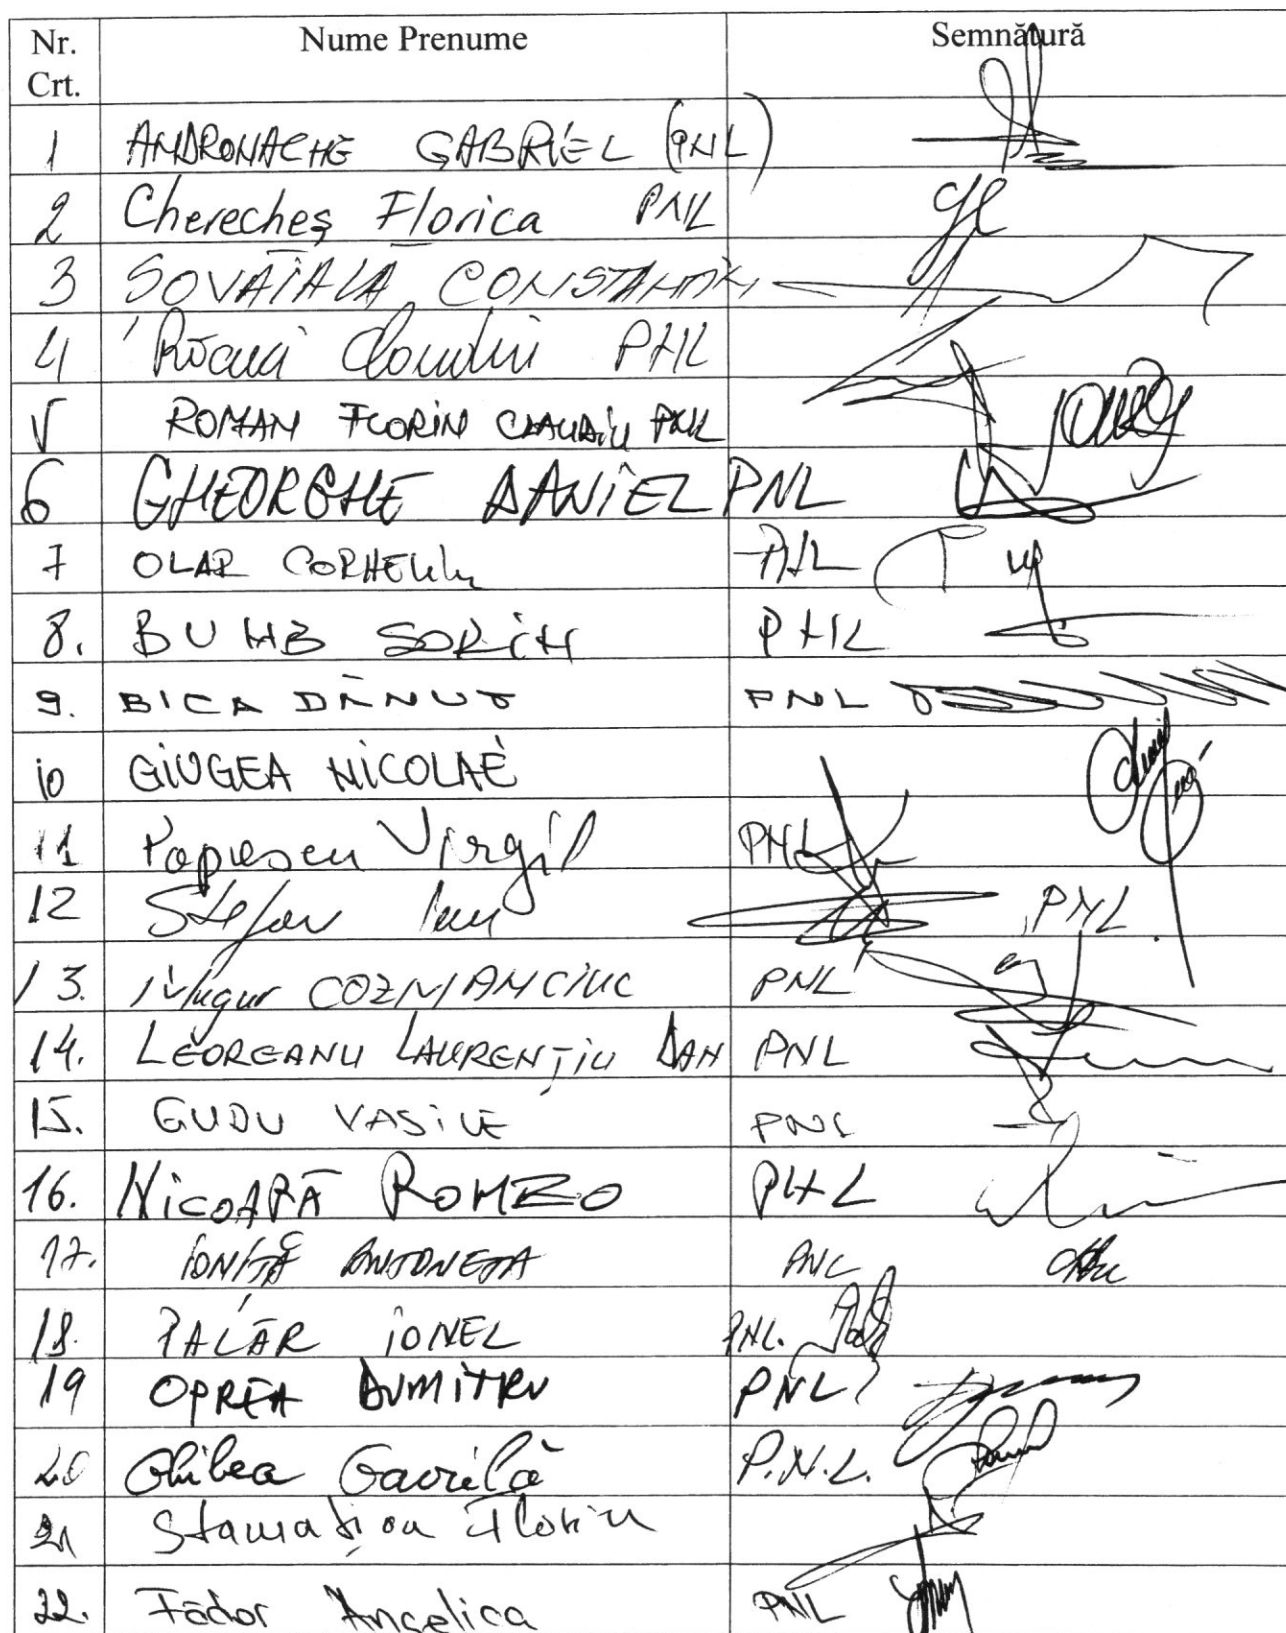 Nr. Crt. Nume Prenume Semnătură
1 ANDRONACHE GABRIEL (PNL)
2 Cherecheș Florica PNL
3 SOVĂIALĂ CONSTANTIN
4 Răcuci Claudiu PNL
5 ROMAN FLORIN CLAUDIU PNL
6 GHEORGHE DANIEL PNL
7 OLAR CORNELIU PNL
8. BUMB SORIN PNL
9. BICA DĂNUȚ PNL
10 GIUGEA NICOLAE
11 Popescu Virgil PNL
12 Stefan Ion PNL
13. Mugur COZMANCIUC PNL
14. LEOREANU LAURENȚIU DAN PNL
15. GUDU VASILE PNL
16. NICOARĂ ROMEO PNL
17. IONIȚĂ ANTONETA PNL
18. PALĂR IONEL PNL.
19 OPREA DUMITRU PNL
20 Ghilea Găvrilă P.N.L.
21 Stamatian Florin
22. Fădor Angelica PNL